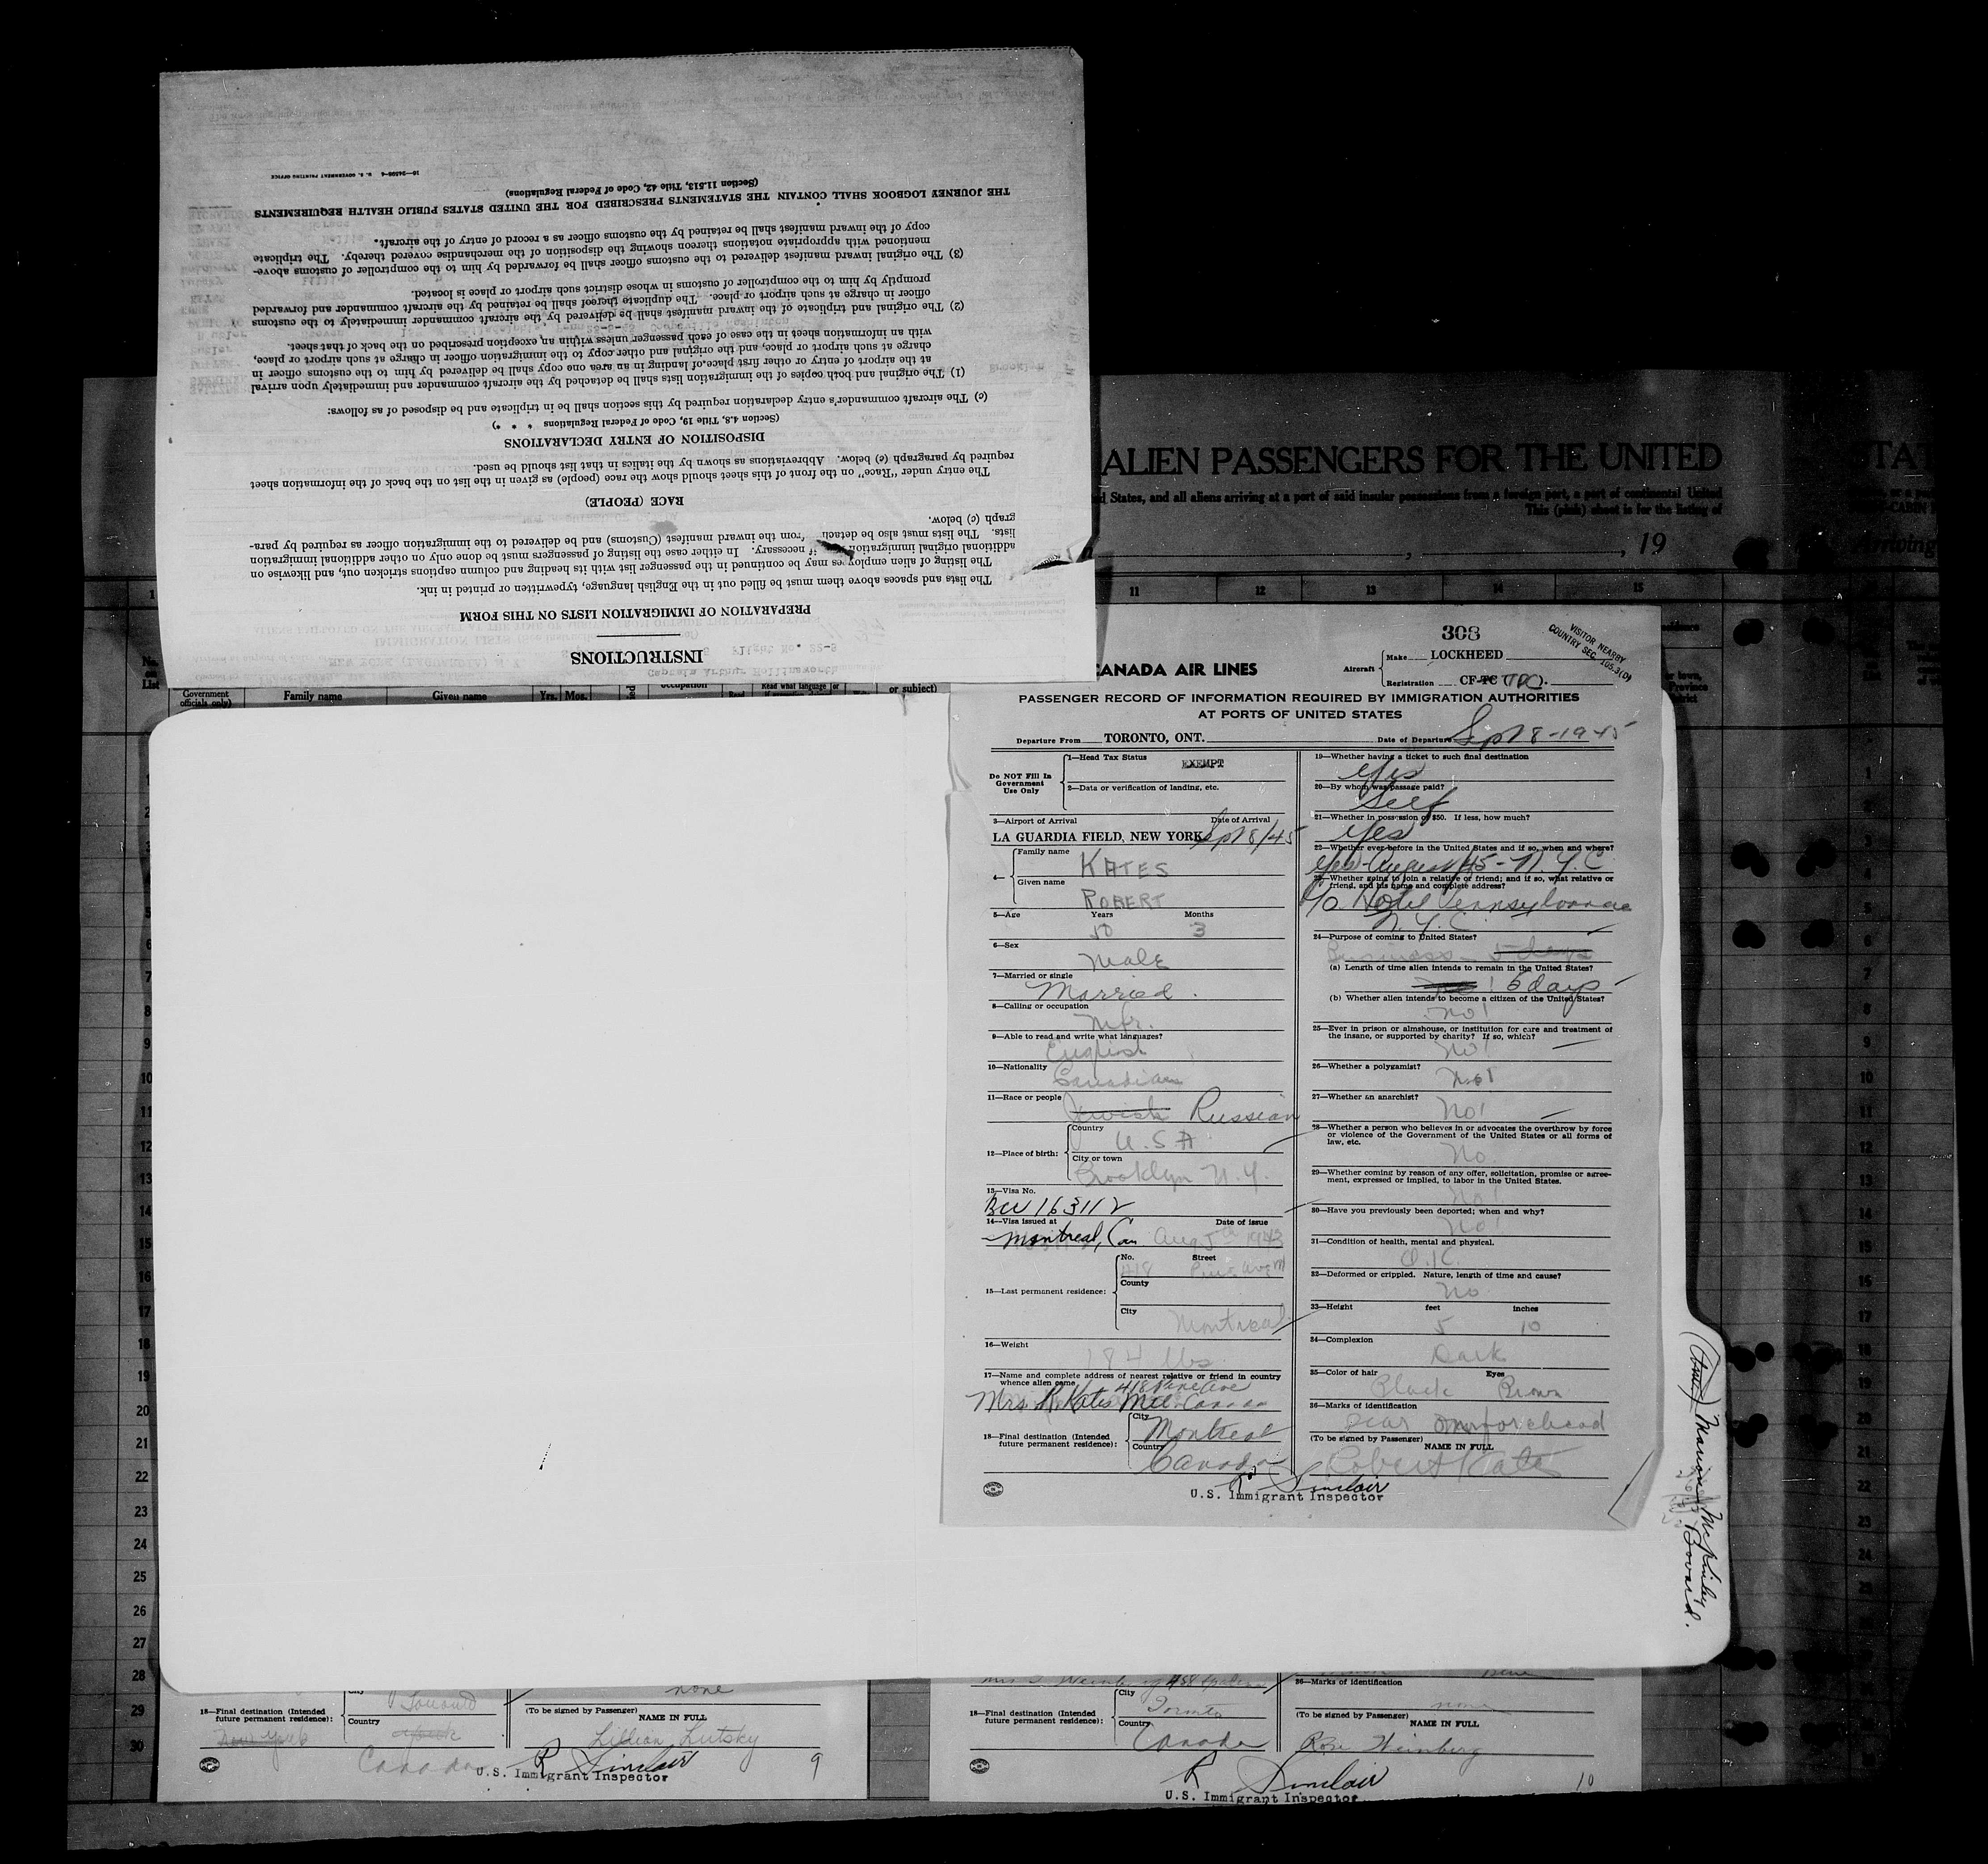 INSTRUCTIONS
PREPARATION OF IMMIGRATION LISTS ON THIS FORM
The lists and spaces above them must be filled out in the English language, typewritten or printed in ink.
The listing of alien employees may be continued in the passenger list with its heading and column captions stricken out, and likewise on
additional original immigration if necessary. In either case the listing of passengers must be done only on other additional immigration
lists. The lists must also be detach from the inward manifest (Customs) and be delivered to the immigration officer as required by para-
graph (c) below.
RACE (PEOPLE)
The entry under "Race" on the front of this sheet should show the race (people) as given in the list on the back of the information sheet
required by paragraph (c) below. Abbreviations as shown by the italics in that list should be used.
DISPOSITION OF ENTRY DECLARATIONS
(Section 4.8, Title 19, Code of Federal Regulations * * *)
(c) The aircraft commander's entry declaration required by this section shall be in triplicate and be disposed of as follows:
(1) The original and both copies of the immigration lists shall be detached by the aircraft commander and immediately upon arrival
at the airport of entry or other first place of landing in an area one copy shall be delivered by him to the customs officer in
charge at such airport or place, and the original and other copy to the immigration officer in charge at such airport or place,
with an information sheet in the case of each passenger unless within an exception prescribed on the back of that sheet.
(2) The original and triplicate of the inward manifest shall be delivered by the aircraft commander immediately to the customs
officer in charge at such airport or place. The duplicate thereof shall be retained by the aircraft commander and forwarded
promptly by him to the comptroller of customs in whose district such airport or place is located.
(3) The original inward manifest delivered to the customs officer shall be forwarded by him to the comptroller of customs above-
mentioned with appropriate notations thereon showing the disposition of the merchandise covered thereby. The triplicate
copy of the inward manifest shall be retained by the customs officer as a record of entry of the aircraft.
THE JOURNEY LOGBOOK SHALL CONTAIN THE STATEMENTS PRESCRIBED FOR THE UNITED STATES PUBLIC HEALTH REQUIREMENTS
(Section 11.513, Title 42, Code of Federal Regulations)
U. S. GOVERNMENT PRINTING OFFICE
ALIEN PASSENGERS FOR THE UNITED
d States, and all aliens arriving at a port of said insular possessions from a foreign port, a port of continental United
This (pink) sheet is for the listing of
, 19
Arriving
11 12 13 14 15
No. on List
Government officials only) Family name Given name Yrs. Mos. Read Read what language or or subject)
308
VISITOR NEARBY
COUNTRY SEC. 105.3(0)
CANADA AIR LINES
Aircraft Make LOCKHEED
Registration CF-TC
PASSENGER RECORD OF INFORMATION REQUIRED BY IMMIGRATION AUTHORITIES
AT PORTS OF UNITED STATES
Departure From TORONTO, ONT. Date of Departure Sept 8-1945
Do NOT Fill In Government Use Only
1—Head Tax Status EXEMPT
2—Data or verification of landing, etc.
3—Airport of Arrival Date of Arrival
LA GUARDIA FIELD, NEW YORK Sept 8/45
4— Family name KATES
Given name ROBERT
5—Age Years 50 Months 3
6—Sex Male
7—Married or single Married.
8—Calling or occupation Mfr.
9—Able to read and write what languages? English
10—Nationality Canadian
11—Race or people Jewish Russian
12—Place of birth: Country U.S.A
City or town Brooklyn N.Y.
13—Visa No.
14—Visa issued at Date of issue
Montreal, Can Aug 5th 1943
15—Last permanent residence: No. Street
418 Pine Ave W
County
City Montreal
16—Weight 184 lbs
17—Name and complete address of nearest relative or friend in country
whence alien came 418 Pine Ave
Mrs R. Kates Mtl Canada
18—Final destination (Intended future permanent residence): City Montreal
Country Canada
19—Whether having a ticket to such final destination
yes
20—By whom was passage paid?
Self
21—Whether in possession of $50. If less, how much?
Yes
22—Whether ever before in the United States and if so, when and where?
Yes-August/45-N.Y.C
23—Whether going to join a relative or friend; and if so, what relative or
friend, and his name and complete address?
c/o Hotel Pennsylvania
N.Y.C
24—Purpose of coming to United States?
Business - 5 days
(a) Length of time alien intends to remain in the United States?
5 days
(b) Whether alien intends to become a citizen of the United States?
no!
25—Ever in prison or almshouse, or institution for care and treatment of
the insane, or supported by charity? If so, which?
No!
26—Whether a polygamist?
No!
27—Whether an anarchist?
No!
28—Whether a person who believes in or advocates the overthrow by force
or violence of the Government of the United States or all forms of
law, etc.
No
29—Whether coming by reason of any offer, solicitation, promise or agree-
ment, expressed or implied, to labor in the United States.
No!
30—Have you previously been deported; when and why?
No!
31—Condition of health, mental and physical.
O.K.
32—Deformed or crippled. Nature, length of time and cause?
No
33—Height feet 5 inches 10
34—Complexion
Dark
35—Color of hair Black Eyes Brown
36—Marks of identification
Scar on forehead
(To be signed by Passenger) NAME IN FULL
Robert Kates
R Sinclair
U.S. Immigrant Inspector
Marion McKinley
Boward.
18—Final destination (Intended future permanent residence): City
Country
Canada
none
(To be signed by Passenger)
NAME IN FULL
Lillian Lutsky
R Sinclair
U.S. Immigrant Inspector
9
18—Final destination (Intended future permanent residence): City Toronto
Country Canada
36—Marks of identification
none
(To be signed by Passenger)
NAME IN FULL
Rose Weinberg
R Sinclair
U.S. Immigrant Inspector
10